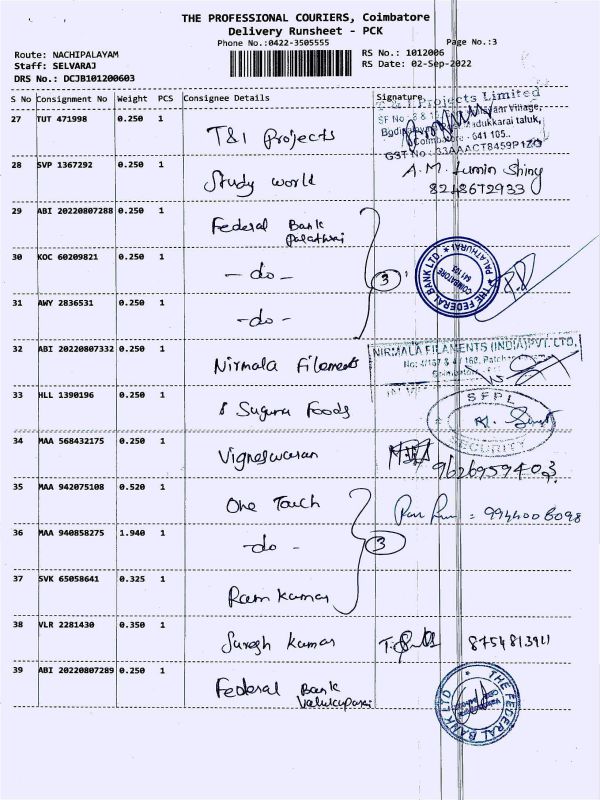 THE PROFESSIONAL COURIERS, Coimbatore
Delivery Runsheet - PCK
Phone No.:0422-3505555
Page No.:3
Route: NACHIPALAYAM
RS No.: 1012006
Staff: SELVARAJ
RS Date: 02-Sep-2022
DRS No.: DCJB101200603
S No Consignment No Weight PCS Consignee Details Signature
27 TUT 471998 0.250 1 T&I Projects
Projects Limited
Village,
Madukkarai taluk,
Coimbatore - 641 105.
GST No : 33AAACT8459P1ZO
28 SVP 1367292 0.250 1 Study world A.M. Lumin Shiny
8248672933
29 ABI 20220807288 0.250 1 Federal Bank
Palathurai
30 KOC 60209821 0.250 1 - do - 3
THE FEDERAL BANK LTD. PALATHURAI
COIMBATORE
641 105
31 AWY 2836531 0.250 1 - do -
32 ABI 20220807332 0.250 1 Nirmala Filaments
NIRMALA FILAMENTS (INDIA) PVT. LTD.
33 HLL 1390196 0.250 1 Suguna Foods
SFPL
SECURITY
34 MAA 568432175 0.250 1 Vigneswaran 9626959403
35 MAA 942075108 0.520 1 One Touch
: 9944006098
36 MAA 940858275 1.940 1 - do - 3
37 SVK 65058641 0.325 1 Ram kumar
38 VLR 2281430 0.350 1 Suresh kumar 8754813911
39 ABI 20220807289 0.250 1 Federal Bank
THE FEDERAL BANK LTD